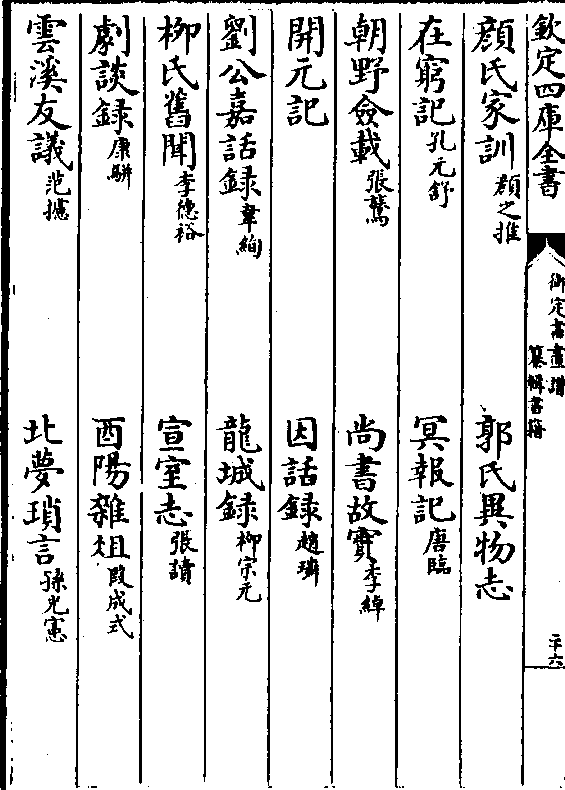 欽定四庫全書
御定書畫譜
纂輯書籍
二十六
顔氏家訓 顔之推
郭氏異物志
在窮記 孔元舒
冥報記 唐臨
朝野僉載 張鷟
尚書故實 李綽
開元記
因話録 趙璘
劉公嘉話録 韋絢
龍城録 柳宗元
柳氏舊聞 李徳裕
宣室志 張讀
劇談録 康駢
酉陽雜俎 段成式
雲溪友議 范攄
北夢瑣言 孫光憲